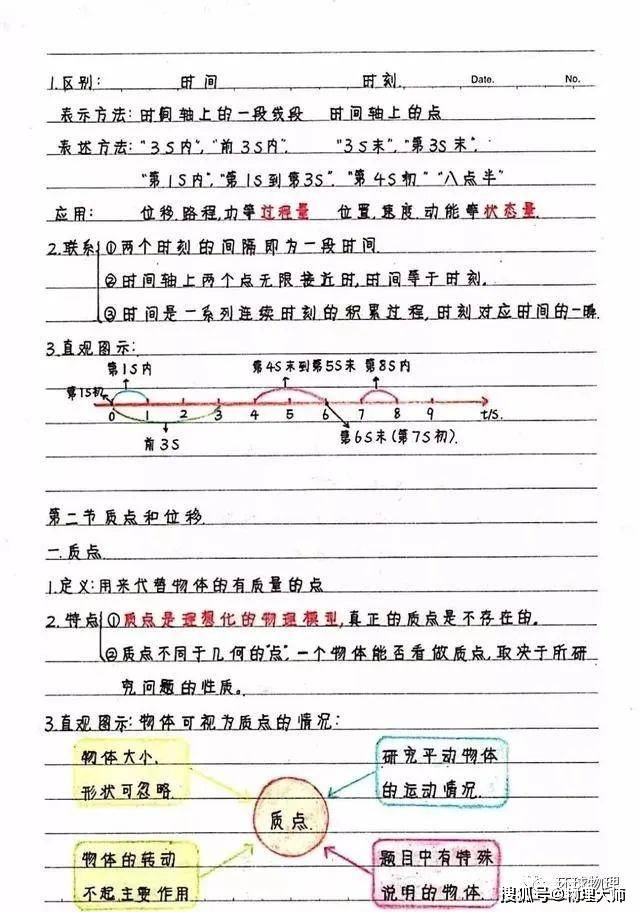 1.区别: 时间 时刻 Date. No.
表示方法: 时间轴上的一段线段 时间轴上的点
表达方法: "3S内", "前3S内". "3S末", "第3S末".
"第1S内", "第1S到第3S". "第4S初" "八点半"
应用: 位移.路程,力等过程量 位置,速度.动能等状态量.
2.联系 ①两个时刻的间隔即为一段时间.
②时间轴上两个点无限接近时,时间等于时刻.
③时间是一系列连续时刻的积累过程,时刻对应时间的一瞬.
3.直观图示:
第1S内 第4S末到第5S末 第8S内
第1S初
0 1 2 3 4 5 6 7 8 9 t/s.
前3S 第6S末(第7S初).
第二节质点和位移.
一.质点
1.定义:用来代替物体的有质量的点
2.特点 ①质点是理想化的物理模型,真正的质点是不存在的。
②质点不同于几何的"点",一个物体能否看做质点,取决于所研
究问题的性质。
3.直观图示:物体可视为质点的情况:
物体大小. 研究平动物体
形状可忽略. 的运动情况.
质点.
物体的转动 题目中有特殊
不起主要作用 说明的物体.
环球物理
搜狐号@物理大师